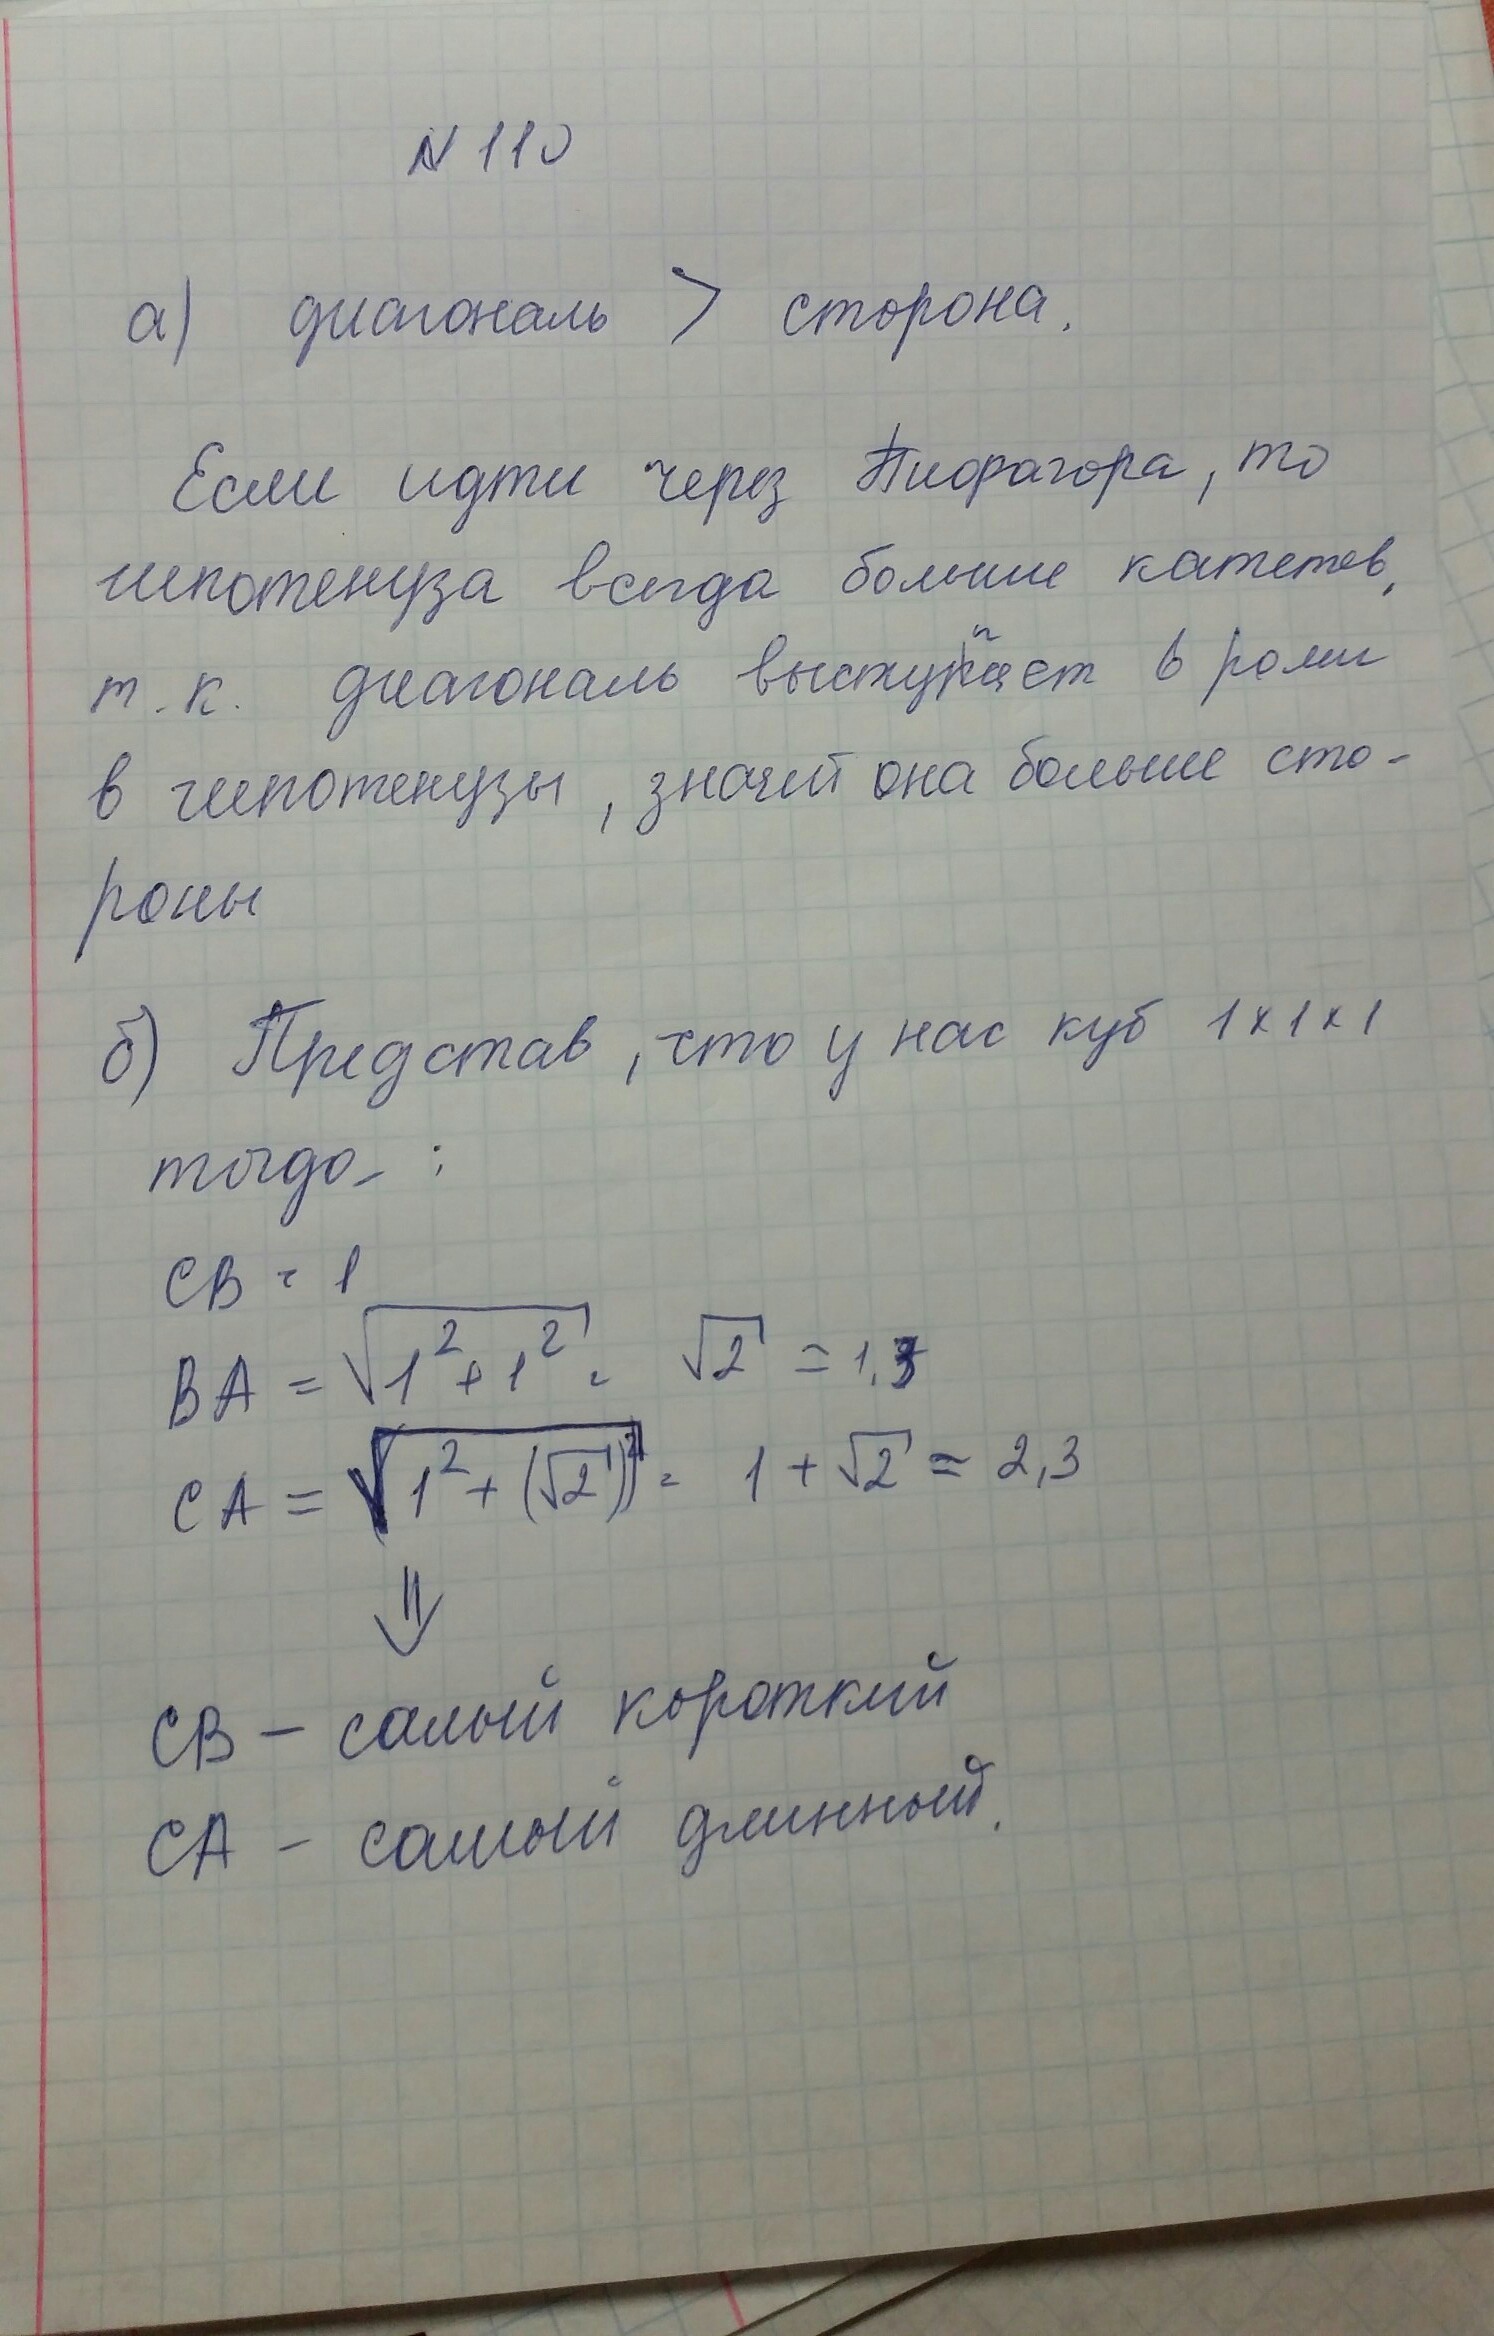 N 110
а) диагональ > сторона.
Если идти через Пифагора, то
гипотенуза всегда больше катетов,
т.к. диагональ выступает в роли
в гипотенузы, значит она больше сто-
роны
б) Представ, что у нас куб 1x1x1
тогда :
CB = 1
BA = √(1² + 1²) = √2 = 1,3
CA = √(1² + (√2)²) = 1 + √2 = 2,3
⇓
CB - самый короткий
CA - самый длинный.